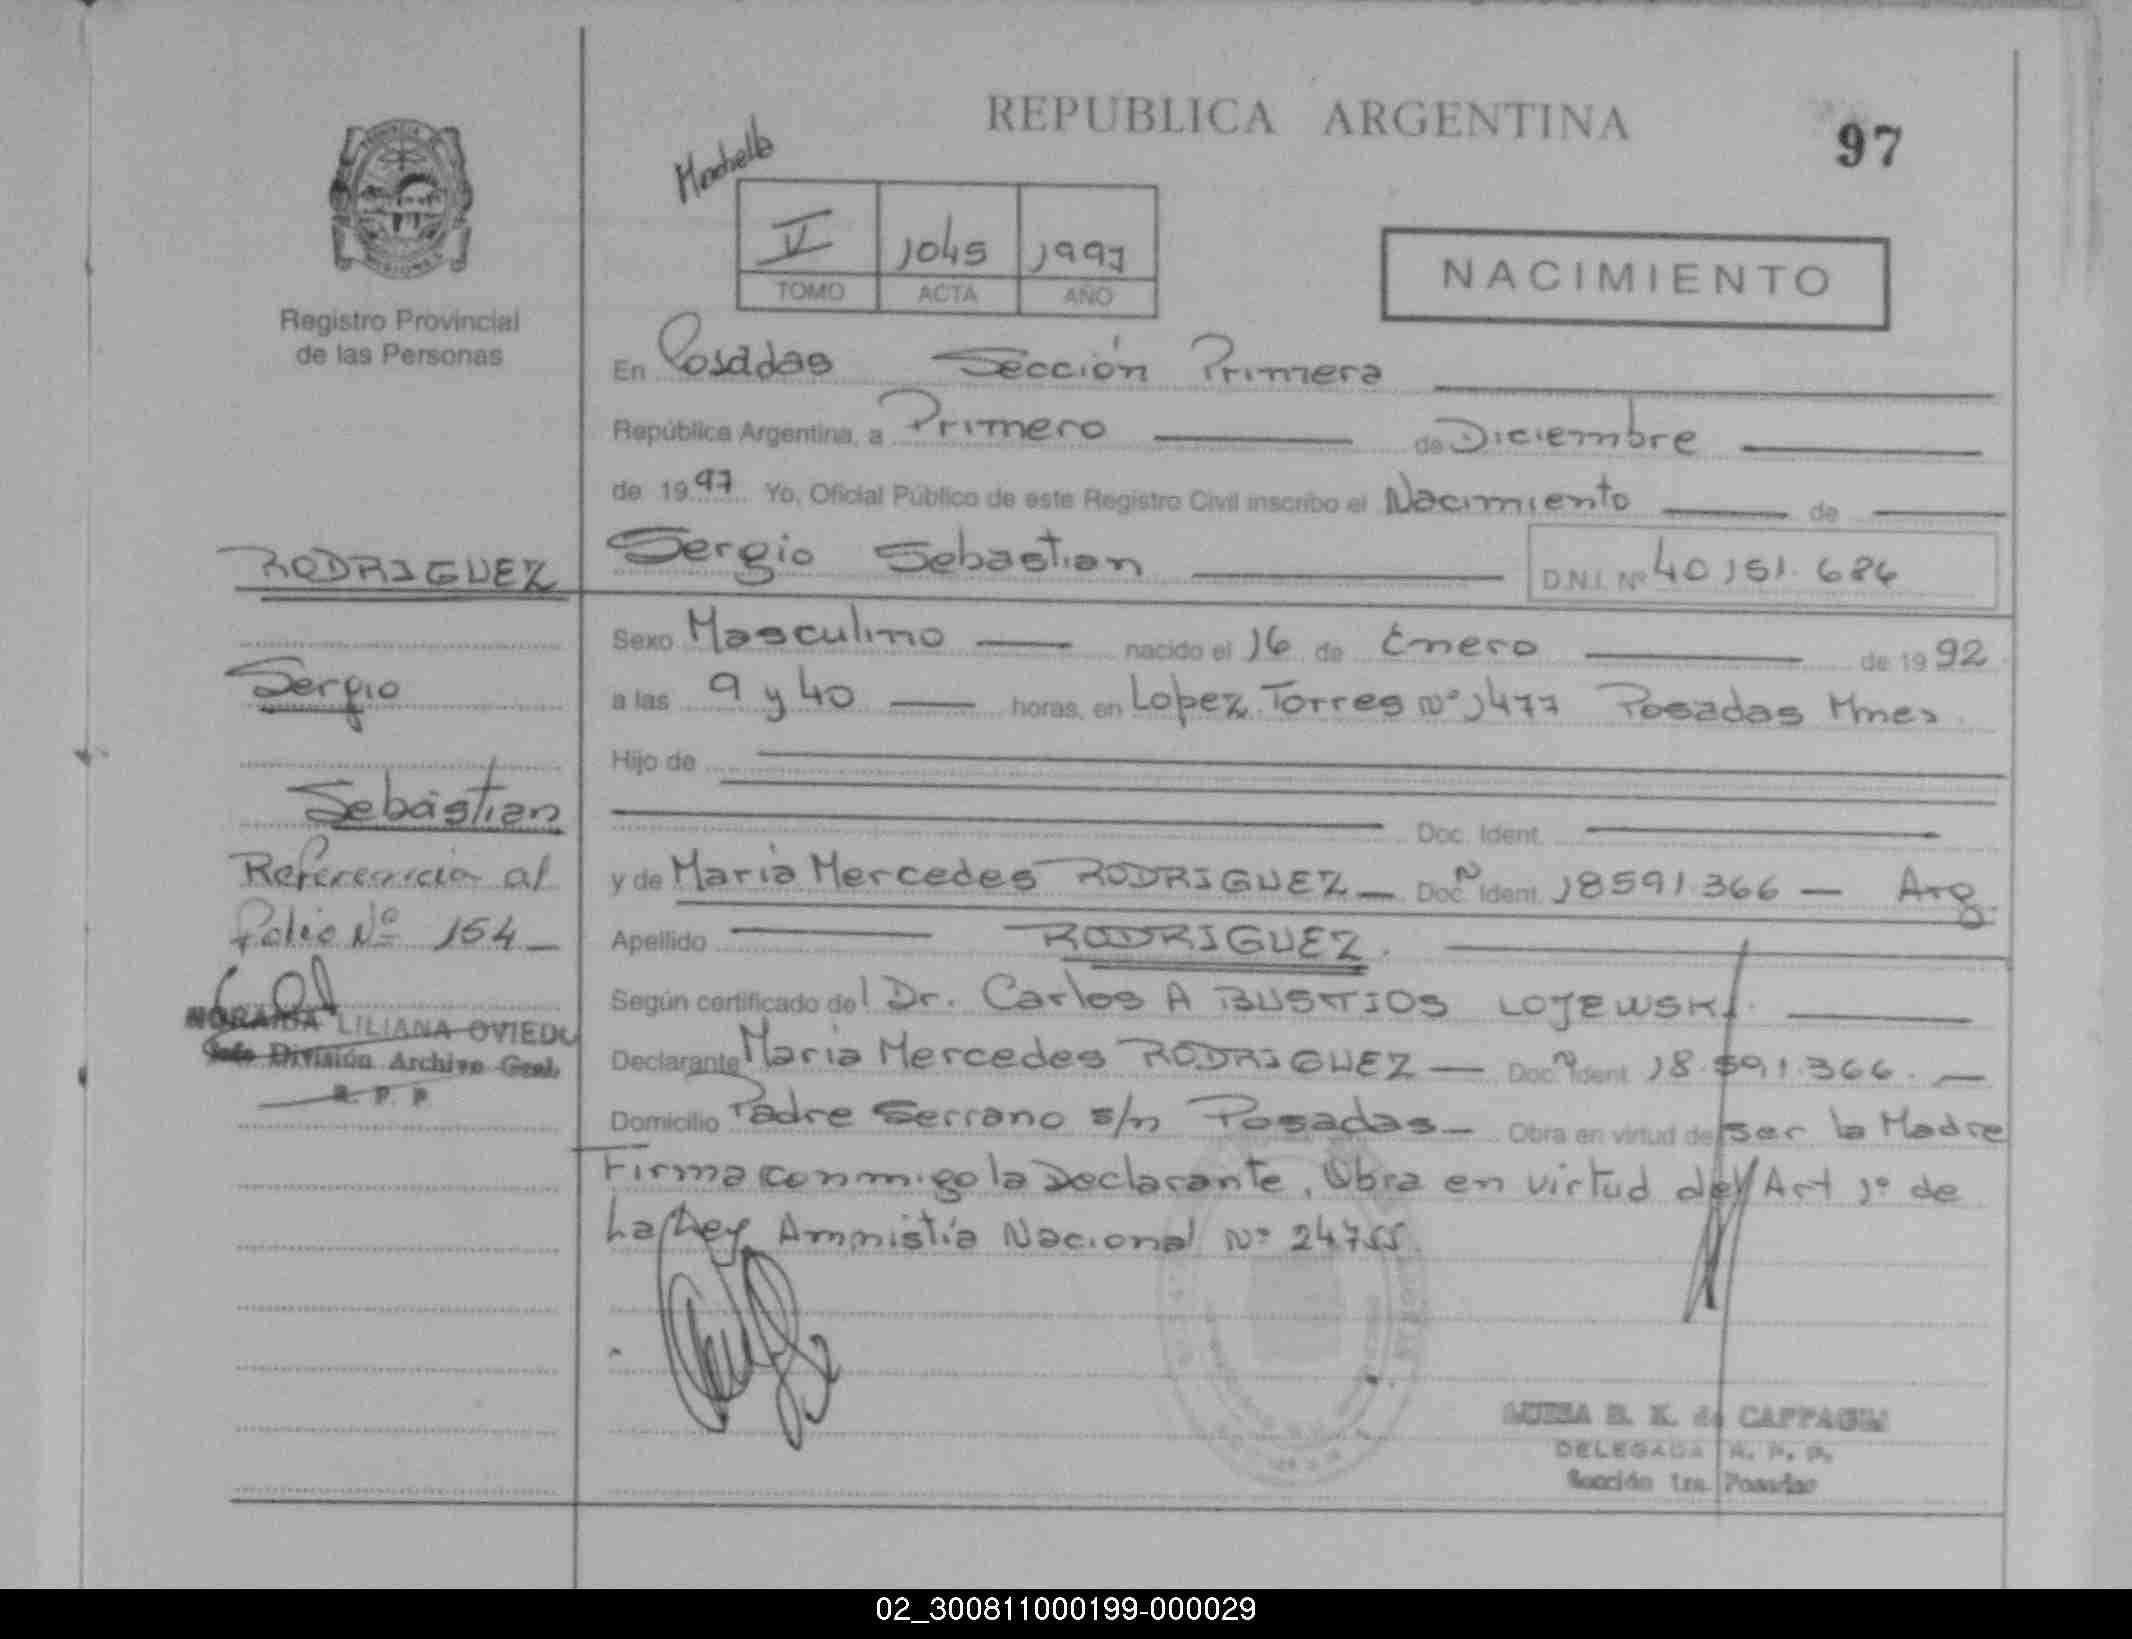 REPUBLICA ARGENTINA
97
V 1045 1997
TOMO ACTA AÑO
NACIMIENTO
Registro Provincial
de las Personas
En Posadas Sección Primera
República Argentina, a Primero de Diciembre
de 1997 Yo, Oficial Público de este Registro Civil inscribo el Nacimiento de
RODRIGUEZ
Sergio Sebastian D.N.I. Nº 40 151.686
Sexo Masculino nacido el 16 de Enero de 1992
Sergio
a las 9 y 40 horas, en Lopez Torres Nº 1477 Posadas Mnes
Hijo de
Sebastian
Doc. Ident.
Referencia al
y de Maria Mercedes RODRIGUEZ Doc. Ident. N 18591366 Arg
folio Nº 154
Apellido RODRIGUEZ.
Según certificado del Dr. Carlos A BUSTIOS LOJEWSKI.
NORAIDA LILIANA OVIEDO
Jefe División Archivo Gral.
R. P. P.
Declarante Maria Mercedes RODRIGUEZ Doc. Ident. N 18.591.366.
Domicilio Padre Serrano s/n Posadas Obra en virtud de ser la Madre
Firma conmigo la Declarante, Obra en virtud del Art 1º de
La Ley Amnistia Nacional Nº 24755
DELEGADA R. P. P.
Sección 1ra. Posadas
02_300811000199-000029